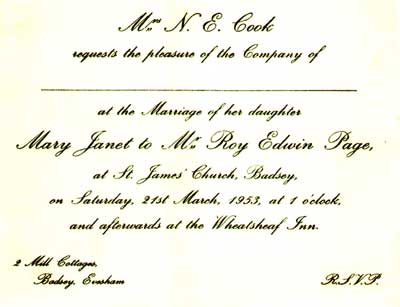 Mrs N. E. Cook
requests the pleasure of the Company of
at the Marriage of her daughter
Mary Janet to Mr Roy Edwin Page,
at St. James' Church, Badsey,
on Saturday, 21st March, 1953, at 1 o'clock,
and afterwards at the Wheatsheaf Inn.
2 Mill Cottages,
Badsey, Evesham
R.S.V.P.